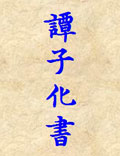 譚子化書